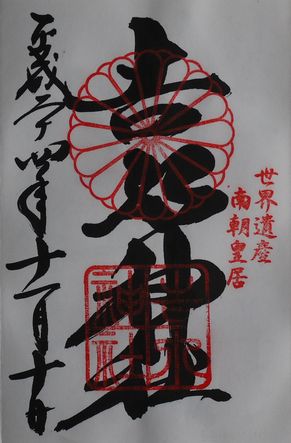 世界遺産
南朝皇居
吉水神社
平成二十四年十一月十日